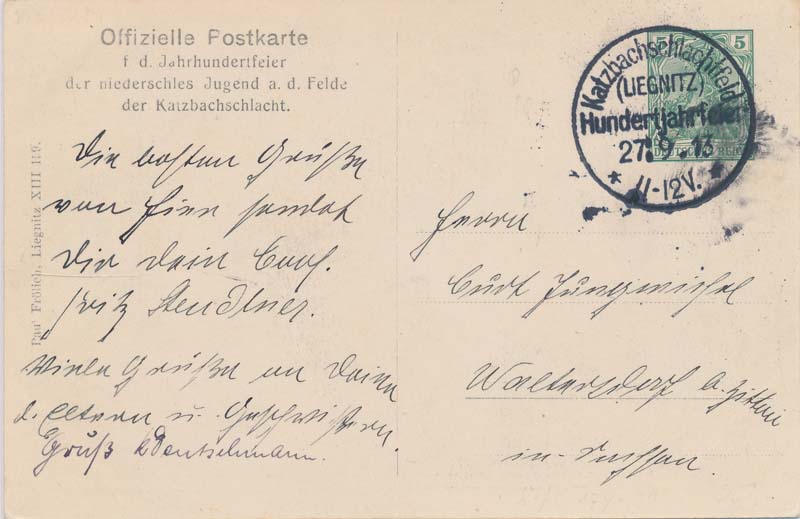 Offizielle Postkarte
f d. Jahrhundertfeier
der niederschles Jugend a. d. Felde
der Katzbachschlacht.
Die besten Grüße
von hier sendet
Dir dein
Fritz
Viele Grüße an Deine
l. Eltern u. Geschwistern.
Gruß
Paul Frölich, Liegnitz XIII 119.
5 5
DEUTSCHES REICH
Katzbachschlachtfeld
(LIEGNITZ)
Hundertjahrfeier
27.9.13
* 11-12V. *
Herrn
Curt Jungmichel
Waltersdorf b. Zittau
in Sachsen.